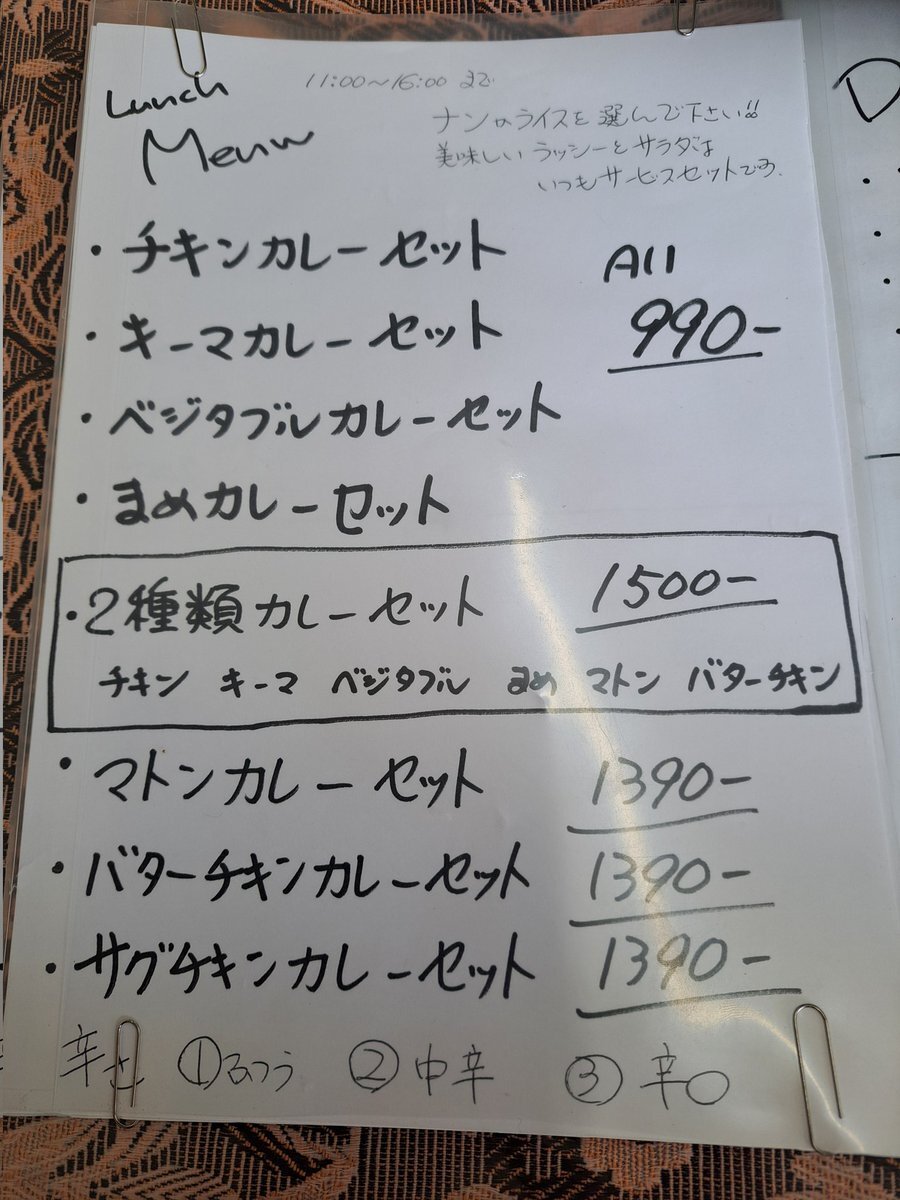 Lunch 11:00～16:00 まで
Menu
ナンorライスを選んで下さい!!
美味しいラッシーとサラダは
いつもサービスセットです.
・チキンカレーセット All
・キーマカレーセット 990-
・ベジタブルカレーセット
・まめカレーセット
・2種類カレーセット 1500-
チキン キーマ ベジタブル まめ マトン バターチキン
・マトンカレーセット 1390-
・バターチキンカレーセット 1390-
・サグチキンカレーセット 1390-
辛さ ①ふつう ②中辛 ③辛○
D